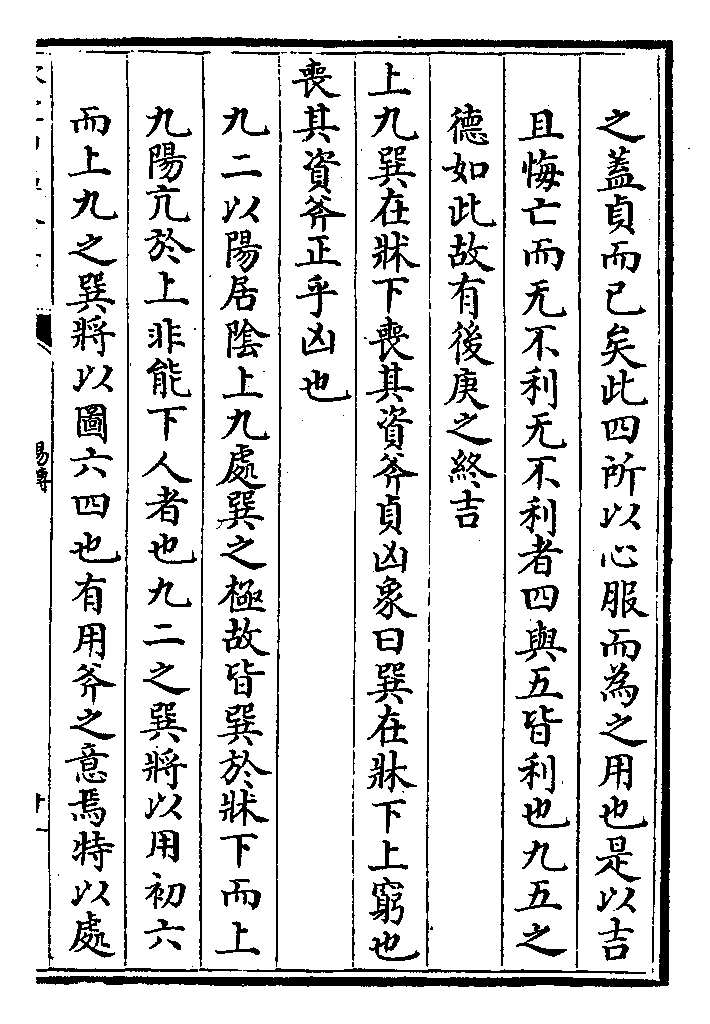 之蓋貞而已矣此四所以心服而為之用也是以吉
且悔亡而无不利无不利者四與五皆利也九五之
德如此故有後庚之終吉
上九巽在牀下喪其資斧貞凶象曰巽在牀下上窮也
喪其資斧正乎凶也
九二以陽居陰上九處巽之極故皆巽於牀下而上
九陽亢於上非能下人者也九二之巽將以用初六
而上九之巽將以圖六四也有用斧之意焉特以處
易傳
十一